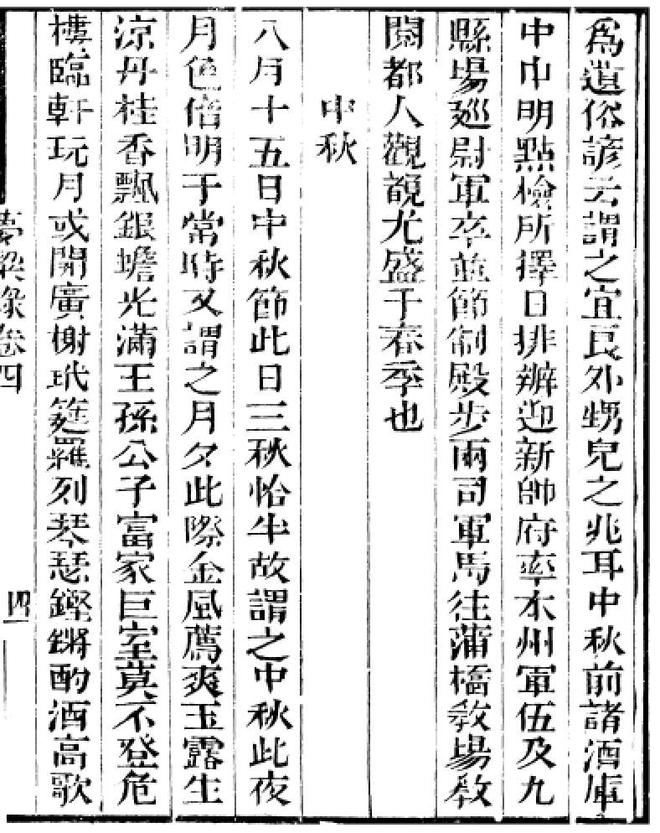 爲遺俗諺云謂之宜良外甥兒之兆耳中秋前諸酒庫
中申明點檢所擇日排辦迎新帥府率本州軍伍及九
縣場廵尉軍卒並節制殿步兩司軍馬往蒲橋教場教
閱都人觀覩尤盛于春季也
中秋
八月十五日中秋節此日三秋恰半故謂之中秋此夜
月色倍明于常時又謂之月夕此際金風薦爽玉露生
涼丹桂香飄銀蟾光滿王孫公子富家巨室莫不登危
樓臨軒玩月或開廣榭玳筵羅列琴瑟鏗鏘酌酒高歌
夢粱錄卷四
四